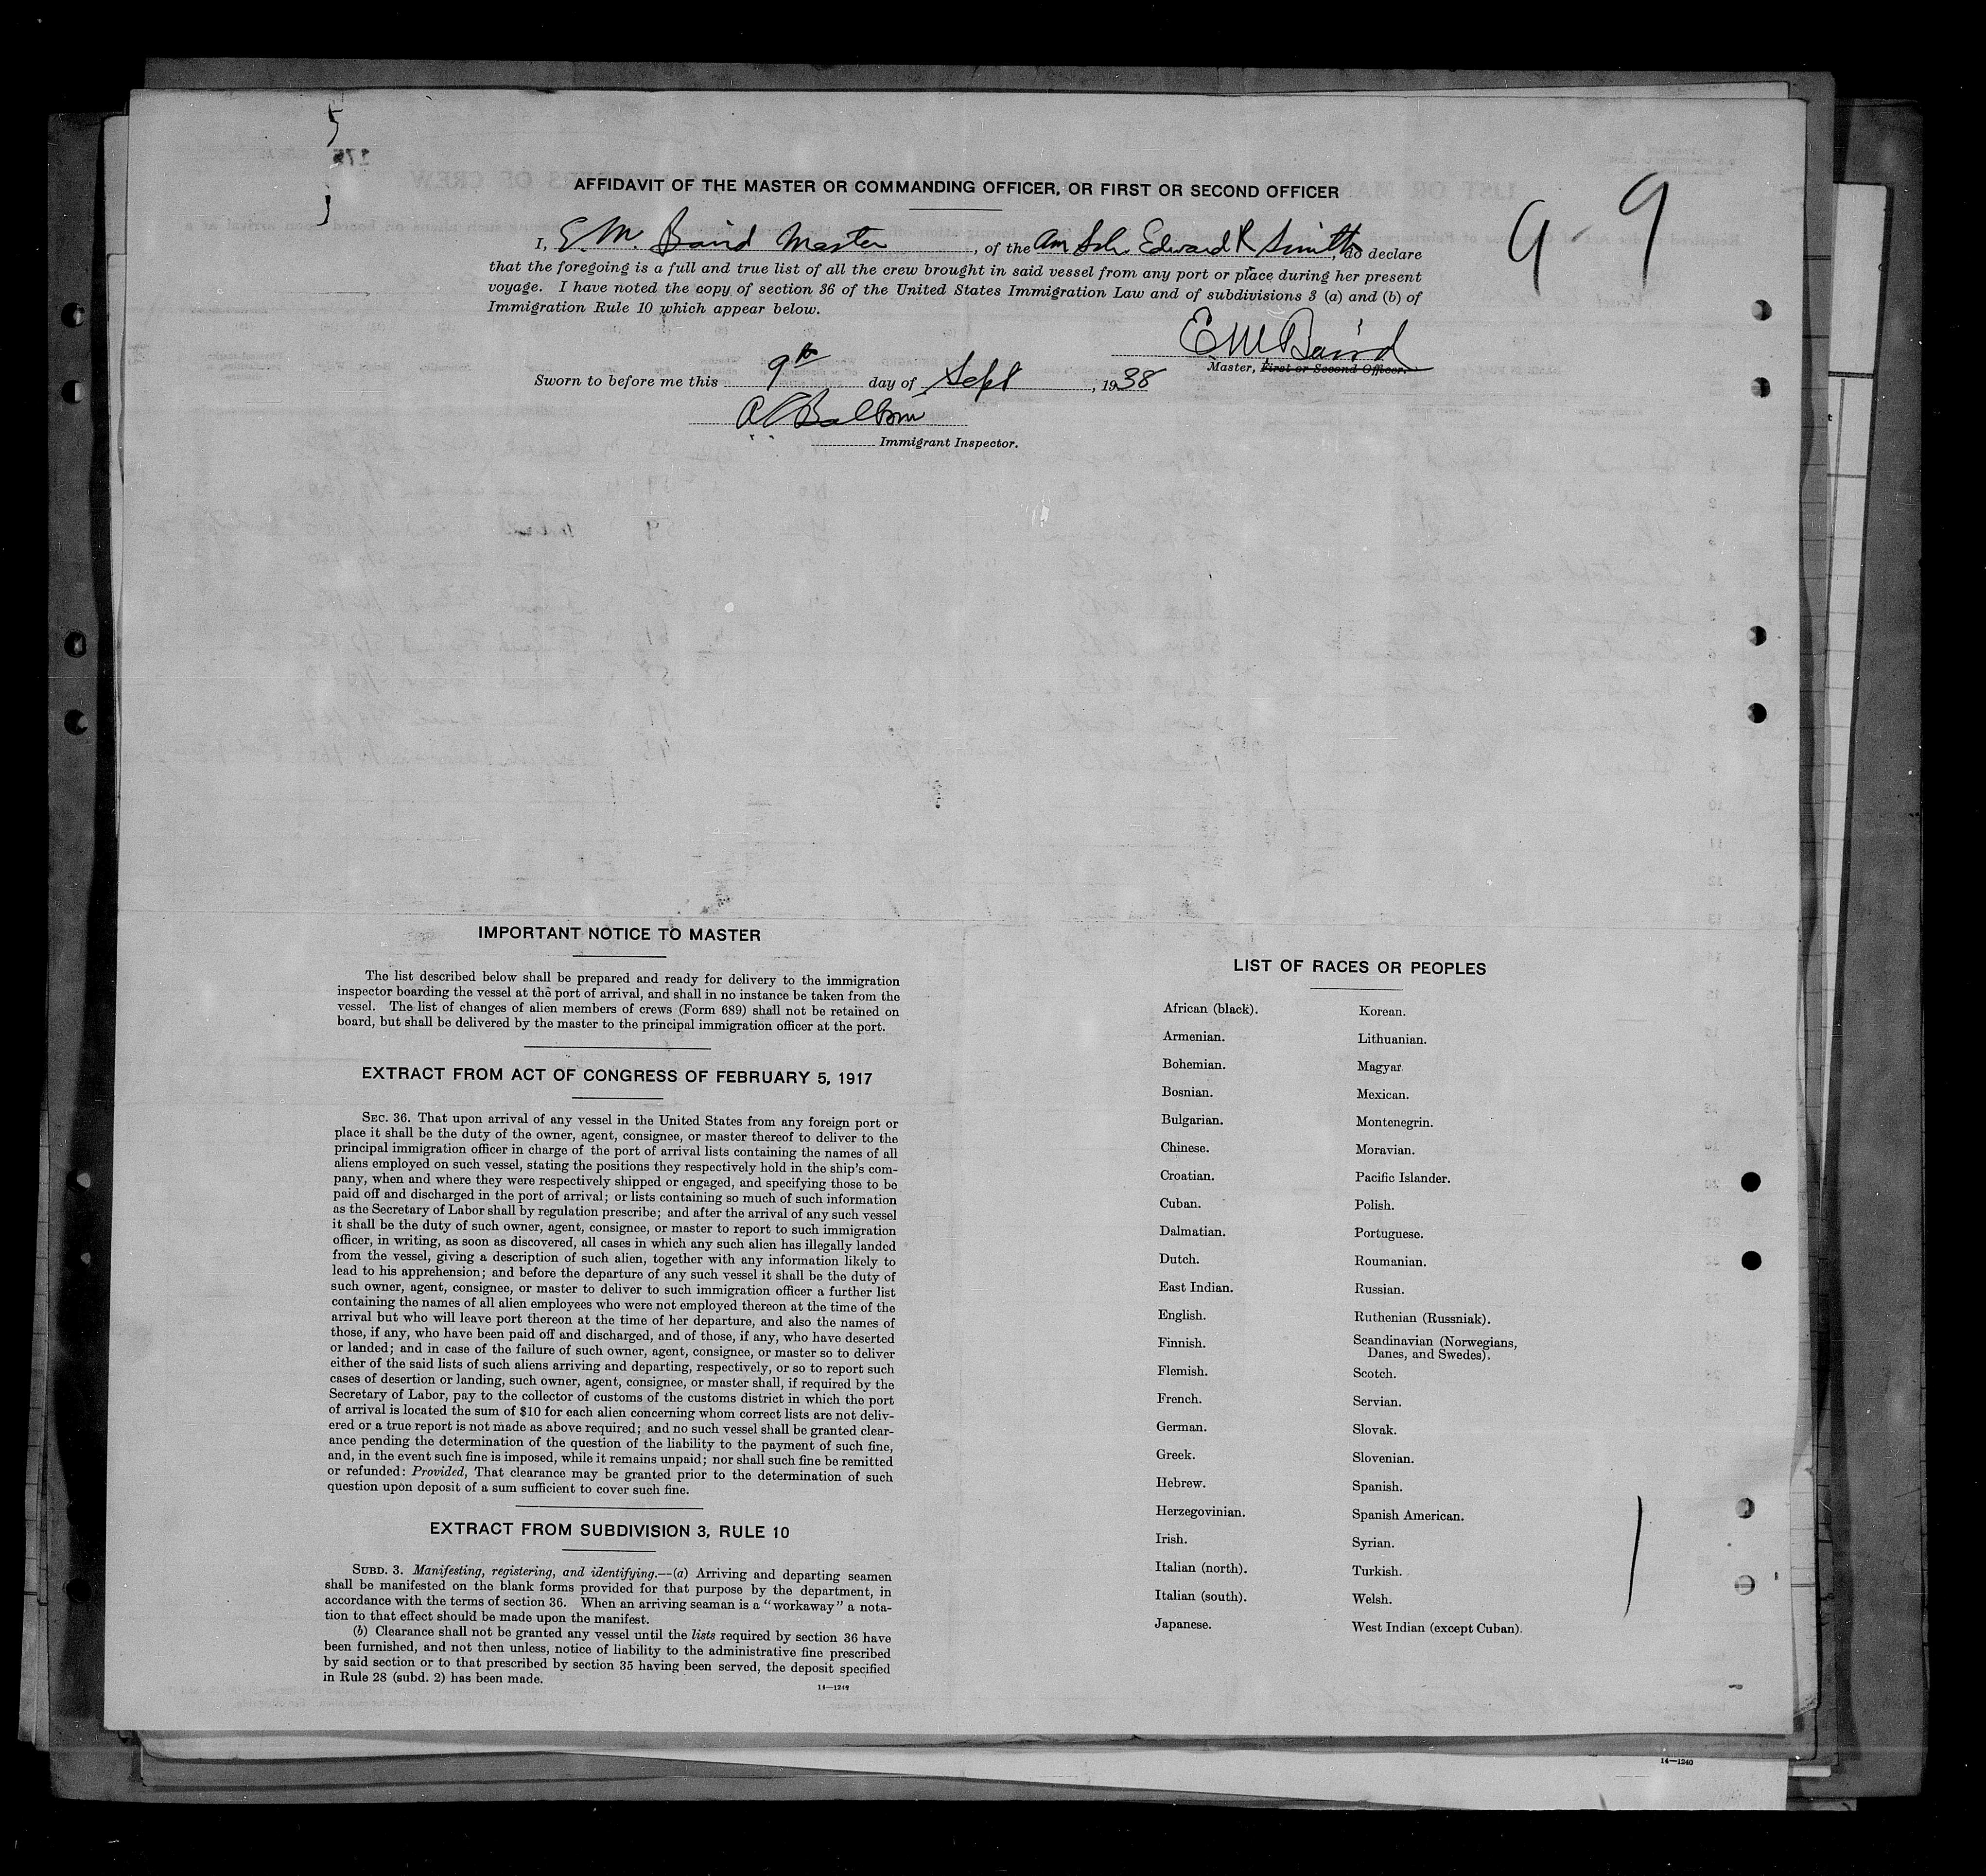 AFFIDAVIT OF THE MASTER OR COMMANDING OFFICER, OR FIRST OR SECOND OFFICER
9-9
I, E.M. Baird Master, of the Am Sch Edward R Smith, do declare
that the foregoing is a full and true list of all the crew brought in said vessel from any port or place during her present
voyage. I have noted the copy of section 36 of the United States Immigration Law and of subdivisions 3 (a) and (b) of
Immigration Rule 10 which appear below.
E M Baird
Master, First or Second Officer.
Sworn to before me this 9th day of Sept, 1938
Immigrant Inspector.
IMPORTANT NOTICE TO MASTER
The list described below shall be prepared and ready for delivery to the immigration
inspector boarding the vessel at the port of arrival, and shall in no instance be taken from the
vessel. The list of changes of alien members of crews (Form 689) shall not be retained on
board, but shall be delivered by the master to the principal immigration officer at the port.
EXTRACT FROM ACT OF CONGRESS OF FEBRUARY 5, 1917
SEC. 36. That upon arrival of any vessel in the United States from any foreign port or
place it shall be the duty of the owner, agent, consignee, or master thereof to deliver to the
principal immigration officer in charge of the port of arrival lists containing the names of all
aliens employed on such vessel, stating the positions they respectively hold in the ship's com-
pany, when and where they were respectively shipped or engaged, and specifying those to be
paid off and discharged in the port of arrival; or lists containing so much of such information
as the Secretary of Labor shall by regulation prescribe; and after the arrival of any such vessel
it shall be the duty of such owner, agent, consignee, or master to report to such immigration
officer, in writing, as soon as discovered, all cases in which any such alien has illegally landed
from the vessel, giving a description of such alien, together with any information likely to
lead to his apprehension; and before the departure of any such vessel it shall be the duty of
such owner, agent, consignee, or master to deliver to such immigration officer a further list
containing the names of all alien employees who were not employed thereon at the time of the
arrival but who will leave port thereon at the time of her departure, and also the names of
those, if any, who have been paid off and discharged, and of those, if any, who have deserted
or landed; and in case of the failure of such owner, agent, consignee, or master so to deliver
either of the said lists of such aliens arriving and departing, respectively, or so to report such
cases of desertion or landing, such owner, agent, consignee, or master shall, if required by the
Secretary of Labor, pay to the collector of customs of the customs district in which the port
of arrival is located the sum of $10 for each alien concerning whom correct lists are not deliv-
ered or a true report is not made as above required; and no such vessel shall be granted clear-
ance pending the determination of the question of the liability to the payment of such fine,
and, in the event such fine is imposed, while it remains unpaid; nor shall such fine be remitted
or refunded: Provided, That clearance may be granted prior to the determination of such
question upon deposit of a sum sufficient to cover such fine.
EXTRACT FROM SUBDIVISION 3, RULE 10
SUBD. 3. Manifesting, registering, and identifying.—(a) Arriving and departing seamen
shall be manifested on the blank forms provided for that purpose by the department, in
accordance with the terms of section 36. When an arriving seaman is a "workaway" a nota-
tion to that effect should be made upon the manifest.
(b) Clearance shall not be granted any vessel until the lists required by section 36 have
been furnished, and not then unless, notice of liability to the administrative fine prescribed
by said section or to that prescribed by section 35 having been served, the deposit specified
in Rule 28 (subd. 2) has been made.
14—1240
LIST OF RACES OR PEOPLES
African (black).
Armenian.
Bohemian.
Bosnian.
Bulgarian.
Chinese.
Croatian.
Cuban.
Dalmatian.
Dutch.
East Indian.
English.
Finnish.
Flemish.
French.
German.
Greek.
Hebrew.
Herzegovinian.
Irish.
Italian (north).
Italian (south).
Japanese.
Korean.
Lithuanian.
Magyar.
Mexican.
Montenegrin.
Moravian.
Pacific Islander.
Polish.
Portuguese.
Roumanian.
Russian.
Ruthenian (Russniak).
Scandinavian (Norwegians,
Danes, and Swedes).
Scotch.
Servian.
Slovak.
Slovenian.
Spanish.
Spanish American.
Syrian.
Turkish.
Welsh.
West Indian (except Cuban).
14—1240